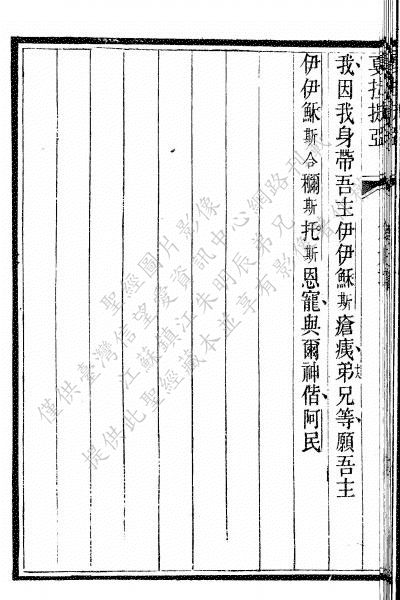 我因我身帶吾主伊伊穌斯瘡痍弟兄等願吾主
伊伊穌斯合穪斯托斯恩寵與爾神偕阿民
聖經圖片影像
僅供臺灣信望愛資訊中心網路利用
江蘇鎮江朱明辰弟兄
提供此聖經藏本並享有影像